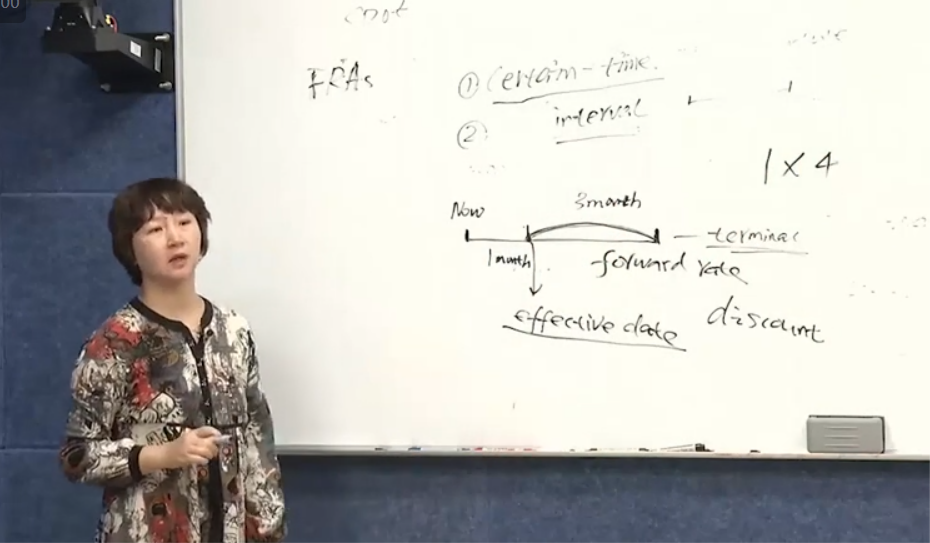 00
FRAs
① Certain-time
② interval
1 X 4
Now
3 month
terminal
1 month
forward rate
effective date
discount